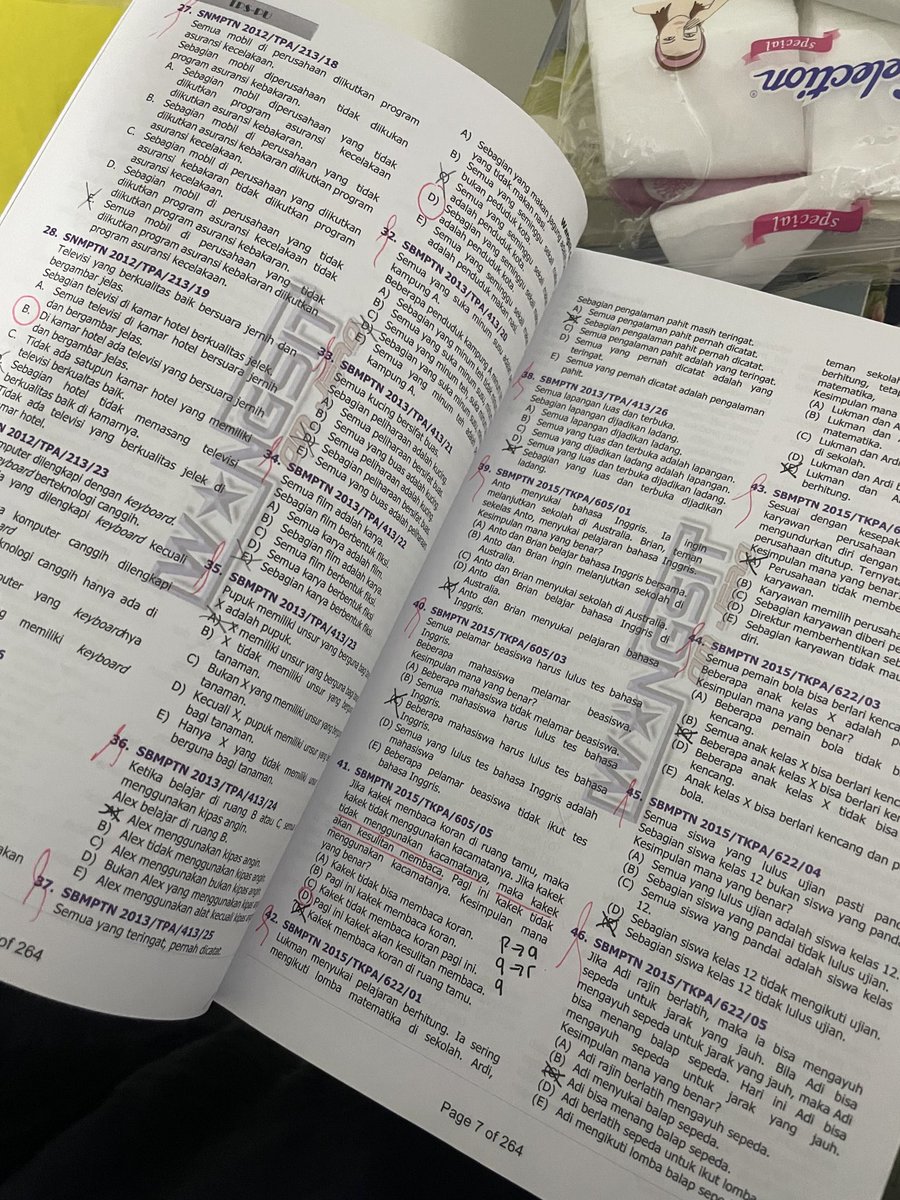 TPS-PU
27. SNMPTN 2012/TPA/213/18
Semua mobil di perusahaan diikutkan program
asuransi kecelakaan.
Sebagian mobil diperusahaan tidak diikukan
program asuransi kebakaran.
A. Sebagian mobil diperusahaan yang tidak
diikutkan program asuransi kecelakaan
diikutkan asuransi kebakaran.
B. Sebagian mobil di perusahaan yang tidak
diikutkan asuransi kebakaran diikutkan program
asuransi kecelakaan.
C. Sebagian mobil di perusahaan yang diikutkan
asuransi kebakaran tidak diikutkan program
asuransi kecelakaan.
D. Sebagian mobil di perusahaan yang tidak
diikutkan program asuransi kecelakaan tidak
diikutkan program asuransi kebakaran.
E. Semua mobil di perusahaan yang tidak
diikutkan program asuransi kebakaran diikutkan
program asuransi kecelakaan.
28. SNMPTN 2012/TPA/213/19
Televisi yang berkualitas baik bersuara jernih dan
bergambar jelas.
Sebagian televisi di kamar hotel berkualitas jelek.
A. Semua televisi di kamar hotel bersuara jernih
dan bergambar jelas.
B. Di kamar hotel ada televisi yang bersuara jernih
dan bergambar jelas.
C. Tidak ada satupun kamar hotel yang memiliki
televisi berkualitas baik.
Sebagian hotel tidak memasang televisi
berkualitas baik di kamarnya.
Tidak ada televisi yang berkualitas jelek di
kamar hotel.
2012/TPA/213/23
komputer dilengkapi dengan keyboard.
keyboard berteknologi canggih.
yang dilengkapi keyboard kecuali
komputer canggih dilengkapi
canggih hanya ada di
yang keyboardnya
memiliki keyboard
of 264
A) Sebagian yang makan
yang tidak makan nasi.
B) Semua yang seminggu sekali
bukan penduduk kota.
Semua yang seminggu
adalah penduduk kota.
D) Sebagian yang seminggu
adalah penduduk kota.
E) Semua yang makan nasi
adalah penduduk
32. SBMPTN 2013/TPA/413/20
Semua yang suka minum susu adalah
kampung A.
Beberapa penduduk kampung
A) Sebagian yang minum
B) Semua yang suka minum
C) Semua yang minum teh,
D) Sebagian yang minum
E) Semua yang suka minum
kampung A.
33. SBMPTN 2013/TPA/413/21
Semua kucing bersifat buas.
Sebagian peliharaan adalah kucing.
A) Semua peliharaan bersifat buas.
B) Semua yang buas adalah kucing.
C) Semua peliharaan adalah kucing.
D) Sebagian peliharaan bersifat buas.
E) Semua yang buas adalah peliharaan
34. SBMPTN 2013/TPA/413/22
Semua film adalah karya.
Sebagian film berbentuk fiksi.
A) Semua karya adalah film.
B) Sebagian film adalah karya.
C) Semua film berbentuk fiksi.
D) Semua karya berbentuk fiksi.
E) Sebagian karya berbentuk fiksi.
35. SBMPTN 2013/TPA/413/23
Pupuk memiliki unsur yang berguna bagi
X adalah pupuk.
A) X memiliki unsur yang berguna bagi
tanaman.
B) X tidak memiliki unsur yang
tanaman.
C) Bukan X yang memiliki unsur yang
tanaman.
D) Kecuali X, pupuk memiliki unsur
bagi tanaman.
E) Hanya X yang tidak memiliki
berguna bagi tanaman.
36. SBMPTN 2013/TPA/413/24
Ketika belajar di ruang B atau C
menggunakan kipas angin.
Alex belajar di ruang B.
Alex menggunakan kipas angin.
B) Alex tidak menggunakan kipas angin.
C) Alex menggunakan bukan kipas angin.
D) Bukan Alex yang menggunakan kipas
E) Alex menggunakan alat kecuali kipas
37. SBMPTN 2013/TPA/413/25
Semua yang teringat, pernah dicatat.
Sebagian pengalaman pahit masih teringat.
A) Semua pengalaman pahit pernah dicatat.
Sebagian pengalaman pahit pernah dicatat.
C) Semua pengalaman pahit adalah yang teringat.
D) Semua yang pernah dicatat adalah yang
teringat.
E) Semua yang pernah dicatat adalah pengalaman
pahit.
38. SBMPTN 2013/TPA/413/26
Semua lapangan luas dan terbuka.
Sebagian lapangan dijadikan ladang.
A) Semua lapangan dijadikan ladang.
B) Semua yang luas dan terbuka adalah lapangan.
C) Semua yang dijadikan ladang adalah lapangan.
D) Semua yang luas dan terbuka dijadikan ladang.
Sebagian yang luas dan terbuka dijadikan
ladang.
39. SBMPTN 2015/TKPA/605/01
Anto menyukai bahasa Inggris. Ia ingin
melanjutkan sekolah di Australia. Brian, teman
sekelas Anto, menyukai pelajaran bahasa Inggris.
Kesimpulan mana yang benar?
(A) Anto dan Brian belajar bahasa Inggris bersama.
(B) Anto dan Brian ingin melanjutkan sekolah di
Australia.
(C) Anto dan Brian menyukai sekolah di Australia.
(D) Anto dan Brian belajar bahasa Inggris di
Australia.
Anto dan Brian menyukai pelajaran bahasa
Inggris.
40. SBMPTN 2015/TKPA/605/03
Semua pelamar beasiswa harus lulus tes bahasa
Inggris.
Beberapa mahasiswa melamar beasiswa.
Kesimpulan mana yang benar?
(A) Beberapa mahasiswa tidak melamar beasiswa.
(B) Semua mahasiswa harus lulus tes bahasa
Inggris.
Beberapa mahasiswa harus lulus tes bahasa
Inggris.
(D) Semua yang lulus tes bahasa Inggris adalah
mahasiswa
(E) Beberapa pelamar beasiswa tidak ikut tes
bahasa Inggris.
41. SBMPTN 2015/TKPA/605/05
Jika kakek membaca koran di ruang tamu, maka
kakek tidak menggunakan kacamatanya. Jika kakek
tidak menggunakan kacamatanya, maka kakek
akan kesulitan membaca. Pagi ini kakek tidak
menggunakan kacamatanya. Kesimpulan mana
yang benar?
(A) Kakek tidak bisa membaca koran.
(B) Pagi ini kakek membaca koran.
(C) Kakek tidak membaca koran pagi ini.
(D) Pagi ini kakek akan kesulitan membaca.
Kakek membaca koran di ruang tamu.
p→q
q→r
q
42. SBMPTN 2015/TKPA/622/01
Lukman menyukai pelajaran berhitung. Ia sering
mengikuti lomba matematika di sekolah. Ardi,
teman sekolah
berhitung, tetapi
matematika,
Kesimpulan mana
(A) Lukman dan
(B) Lukman dan
matematika.
(C) Lukman dan Ardi
di sekolah.
(D) Lukman dan Ardi
Lukman dan
berhitung.
43. SBMPTN 2015/TKPA/6
Sesuai dengan kesepak
karyawan perusahaan
mengundurkan diri dengan
perusahaan ditutup. Ternyata
Kesimpulan mana yang benar
Perusahaan tidak membe
(B) Karyawan memilih perusah
(C) Sebagian karyawan diberi pe
(D) Direktur memberhentikan seb
(E) Sebagian karyawan tidak mau
diri.
44. SBMPTN 2015/TKPA/622/03
Semua pemain bola bisa berlari kenca
Beberapa anak kelas X adalah pe
Kesimpulan mana yang benar?
(A) Beberapa pemain bola tidak b
kencang.
(B) Semua anak kelas X bisa berlari ken
Beberapa anak kelas X bisa berlari ke
(D) Beberapa anak kelas X tidak bisa
kencang.
(E) Anak kelas X bisa berlari kencang dan p
bola.
45. SBMPTN 2015/TKPA/622/04
Semua siswa yang lulus ujian pasti panda
Sebagian siswa kelas 12 bukan siswa yang panda
Kesimpulan mana yang benar?
(A) Semua yang lulus ujian adalah siswa kelas 12.
(B) Sebagian siswa yang pandai tidak lulus ujian.
(C) Semua siswa yang pandai adalah siswa kelas
12.
(D) Sebagian siswa kelas 12 tidak mengikuti ujian.
Sebagian siswa kelas 12 tidak lulus ujian.
46. SBMPTN 2015/TKPA/622/05
Jika Adi rajin berlatih, maka ia bisa mengayuh
sepeda untuk jarak yang jauh. Bila Adi bisa
mengayuh sepeda untuk jarak yang jauh, maka Adi
bisa menang balap sepeda. Hari ini Adi bisa
mengayuh sepeda untuk jarak yang jauh.
Kesimpulan mana yang benar?
(A) Adi rajin berlatih mengayuh sepeda.
(B) Adi menyukai balap sepeda.
Adi bisa menang balap sepeda.
(D) Adi berlatih sepeda untuk ikut lomba
(E) Adi mengikuti lomba balap sepe
Page 7 of 264
WANGSIT
special
Selection
special